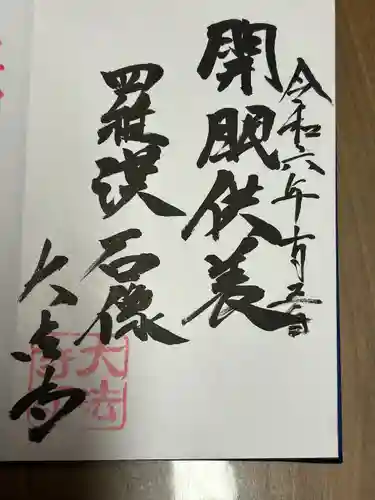 令和六年十月五日
開眼供養
羅漢石像
大法寺
大法
寺印